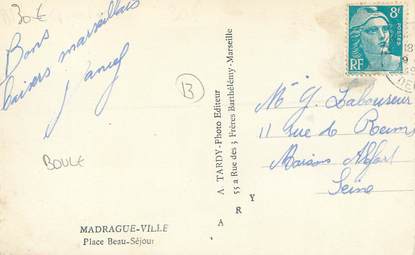 30€
Bons
baisers marseillais
B
BOULE
MADRAGUE-VILLE
Place Beau-Séjour
A. TARDY-Photo Editeur
55 a Rue des 3 Frères Barthélémy-Marseille
A R Y
8F
POSTES
RF
M G. Laboureur
11 rue de Reims
Maisons Alfort
Seine